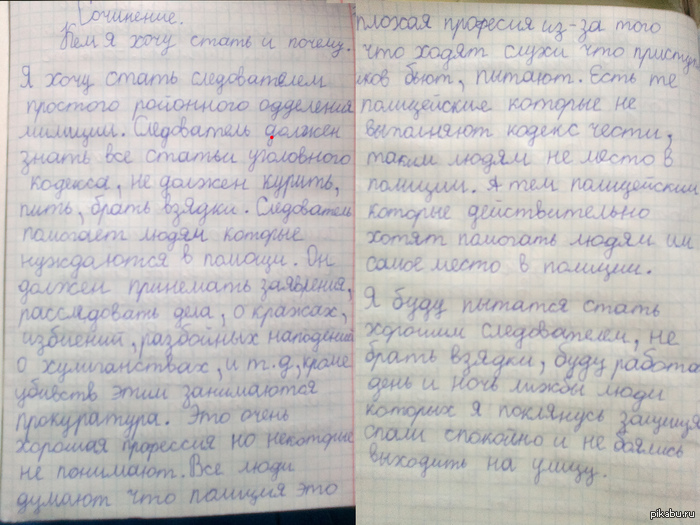 Сочинение.
Кем я хочу стать и почему.
Я хочу стать следователем
простого районного одделения
милиции. Следователь должен
знать все статьи уголовного
кодекса, не должен курить,
пить, брать взядки. Следователь
помогает людям которые
нуждаются в помощи. Он
должен принемать заявления,
расследовать дела, о кражах,
избиений, разбойных нападений
о хулиганствах, и т.д, кроме
убивств этим занимаются
прокуратура. Это очень
хорошая профессия но некоторые
не понимают. Все люди
думают что полиция это
плохая професия из-за того
что ходят слухи что приступ
ков бьют, пытают. Есть те
полицейские которые не
выполняют кодекс чести,
таким людям не место в
полиции. А тем полицейским
которые действительно
хотят помогать людям им
самое место в полиции.
Я буду пытатся стать
хорошим следователем, не
брать взядки, буду работа
день и ночь лижбы люди
которых я поклянусь защища
спали спокойно и не боялись
выходить на улицу.
pikabu.ru